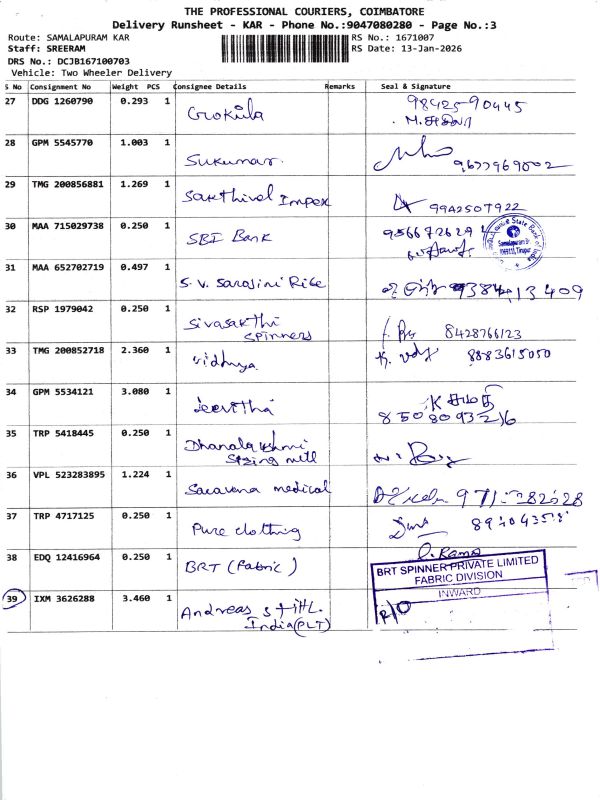 THE PROFESSIONAL COURIERS, COIMBATORE
Delivery Runsheet - KAR - Phone No.:9047080280 - Page No.:3
Route: SAMALAPURAM KAR
RS No.: 1671007
Staff: SREERAM
RS Date: 13-Jan-2026
DRS No.: DCJB167100703
Vehicle: Two Wheeler Delivery
S No Consignment No Weight PCS Consignee Details Remarks Seal & Signature
27 DDG 1260790 0.293 1 Gokila 98425-90445
28 GPM 5545770 1.003 1 Sukumar. 9677969002
29 TMG 200856881 1.269 1 Sakthivel Impex 9942507922
30 MAA 715029738 0.250 1 SBI Bank
State Bank of India
Samalapuram Br.
31 MAA 652702719 0.497 1 S.V. Sarojini Rice
32 RSP 1979042 0.250 1 Sivasakthi
Spinners 8428766123
33 TMG 200852718 2.360 1 Vidhya 8883615050
34 GPM 5534121 3.080 1 Jeevitha
8508093216
35 TRP 5418445 0.250 1 Dhanalakshmi
36 VPL 523283895 1.224 1 Saravana medical
37 TRP 4717125 0.250 1 Pure clothing
38 EDQ 12416964 0.250 1 BRT (Fabric)
BRT SPINNER PRIVATE LIMITED
FABRIC DIVISION
INWARD
39 IXM 3626288 3.460 1 Andreas STIHL.
India (PLT)